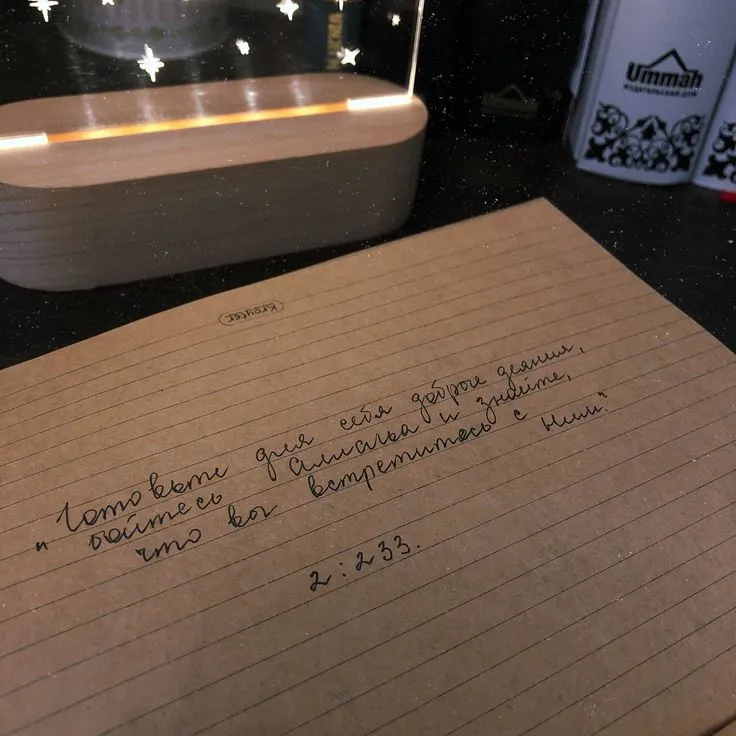 Ummah
издательский дом
Kroyter
"Готовьте для себя доброе деяния,
бойтесь Аллаха и знайте,
что вы встретитесь с Ним."
2:233.